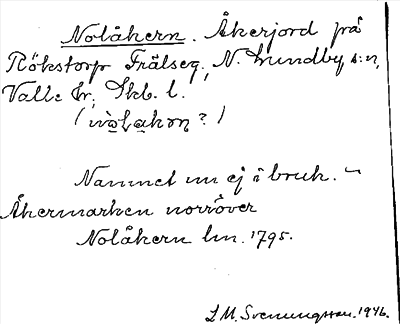 Nolåkern. Åkerjord på
Rökstorp Frälseg., N. Lundby s:n,
Valle hr, Skb. l.
Namnet nu ej i bruk.
Åkermarken norröver
Nolåkern lm. 1795.
L. M. Svenungsson. 1946.